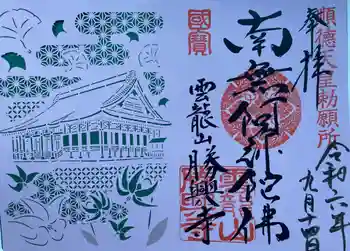 奉拝
順徳天皇勅願所
令和六年
九月十四日
國寶
南無阿弥陀佛
雲龍山勝興寺